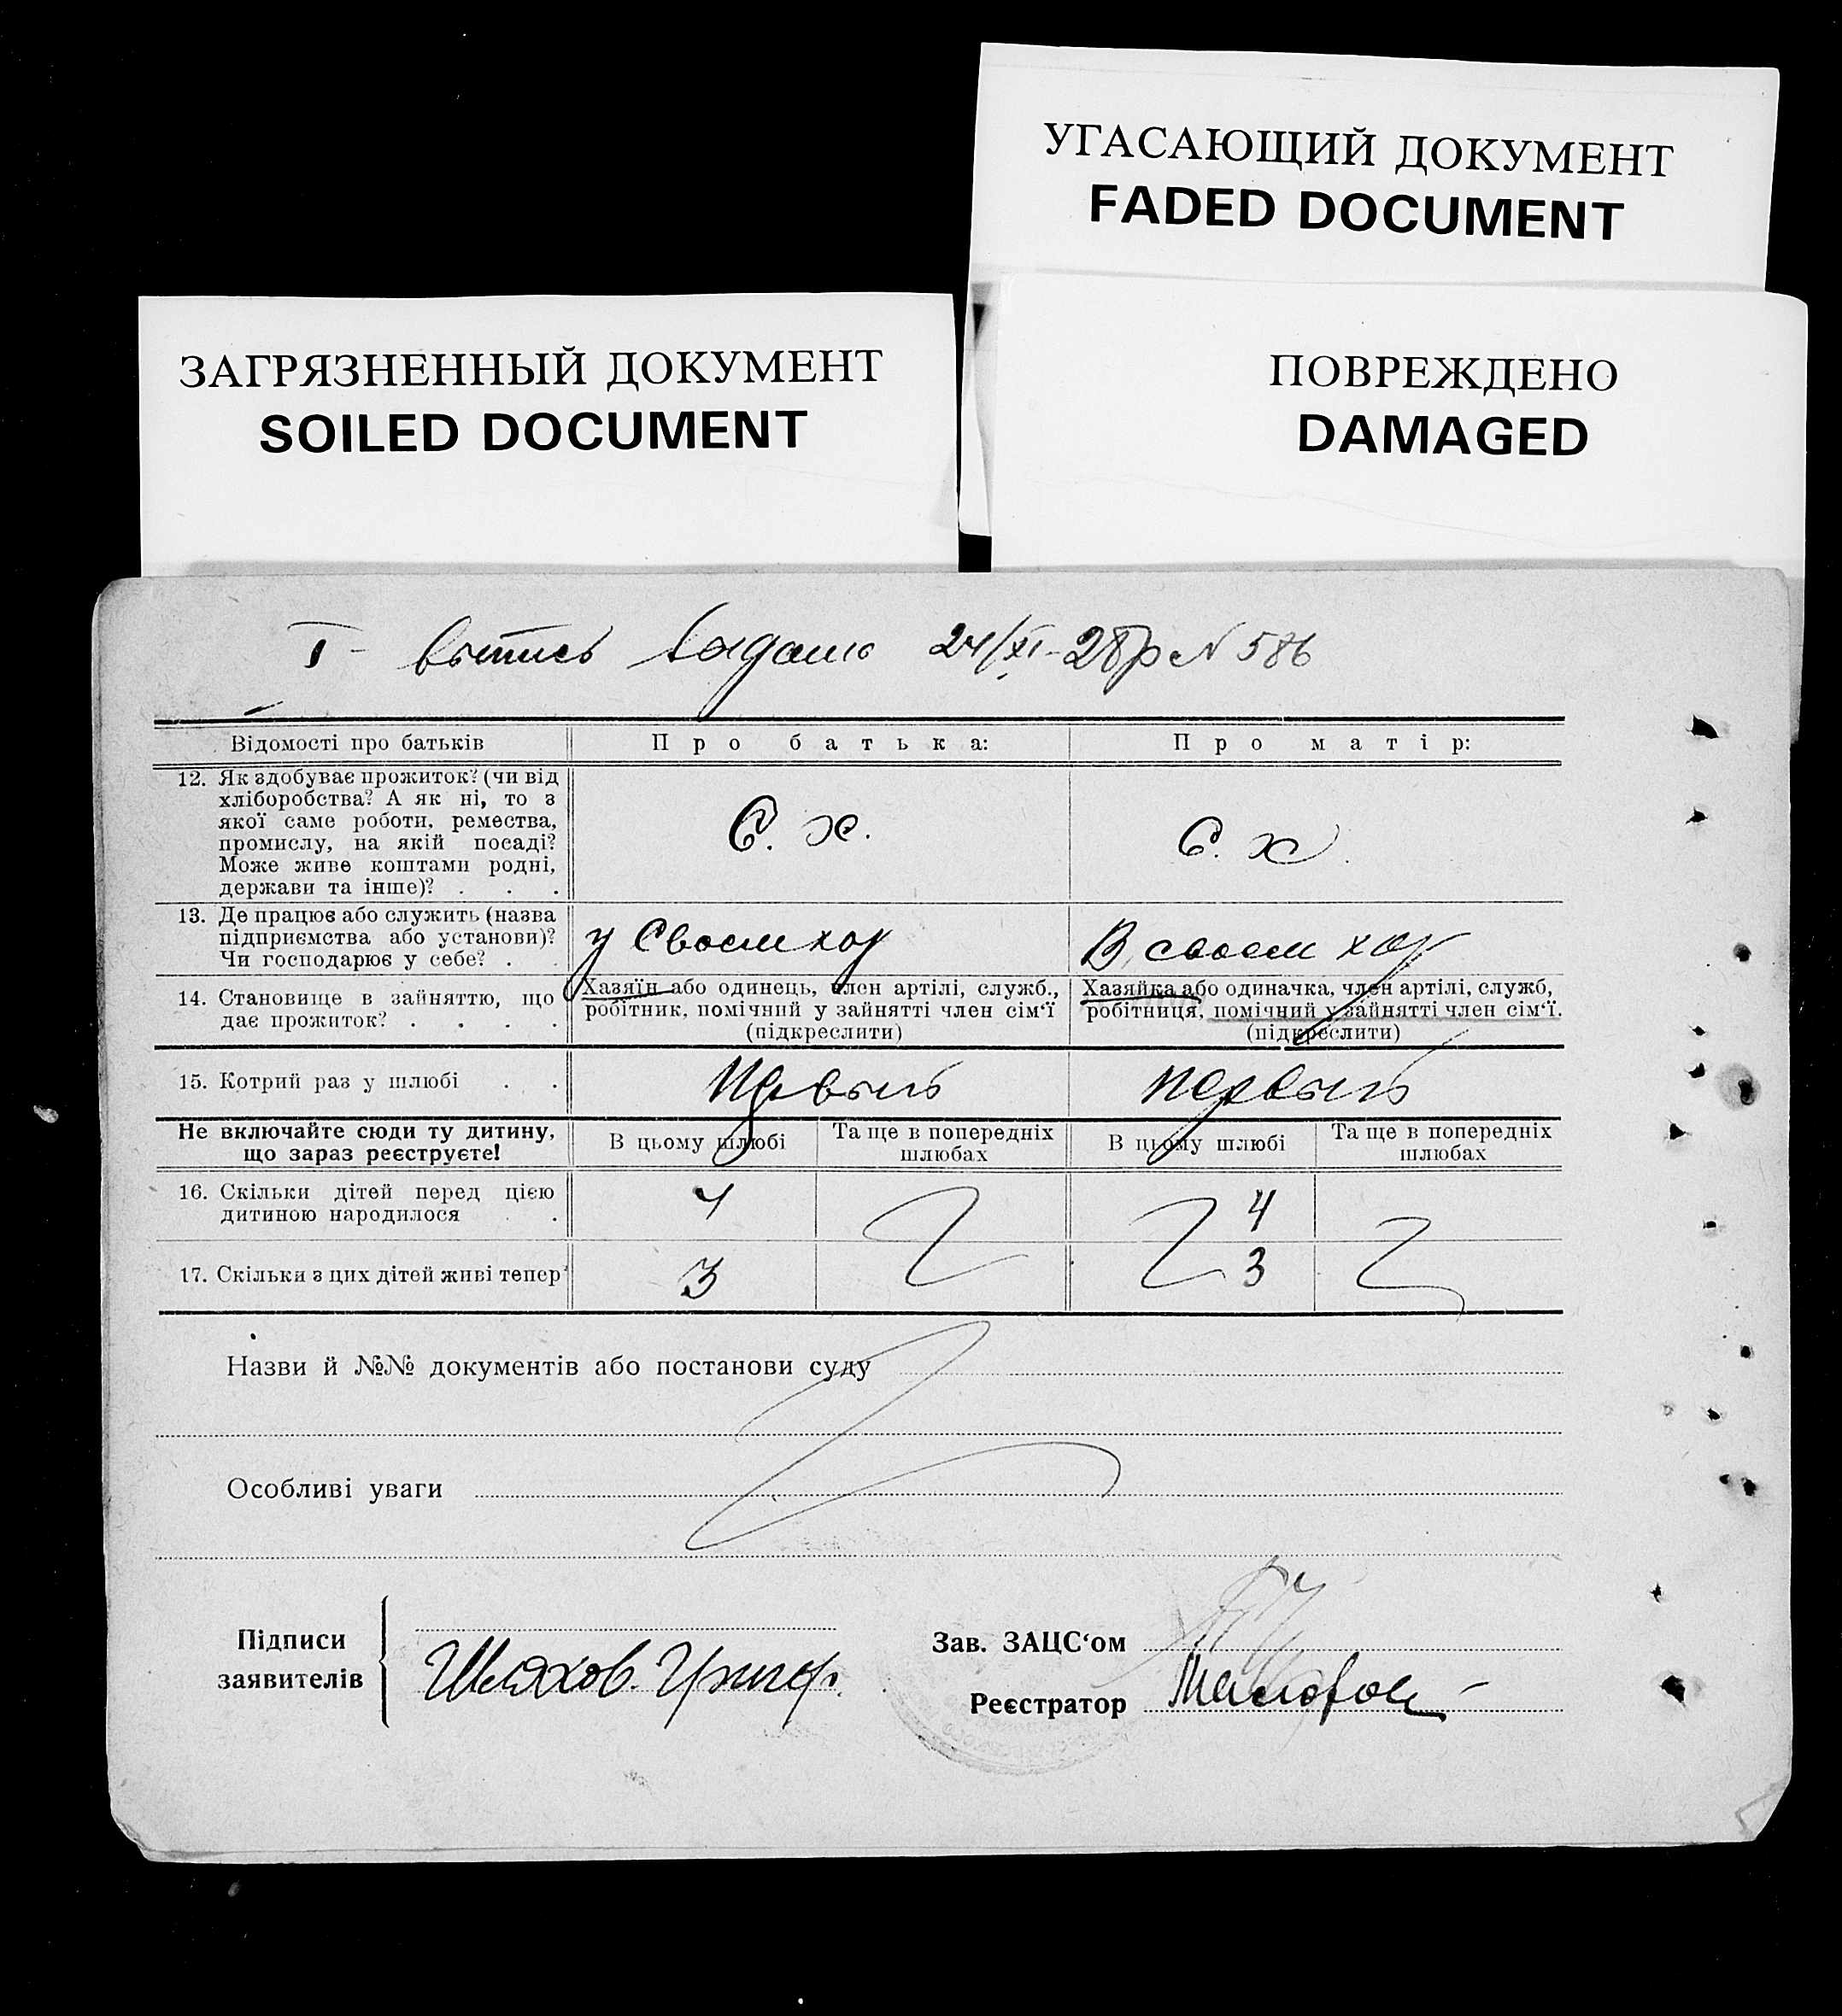 УГАСАЮЩИЙ ДОКУМЕНТ
FADED DOCUMENT
ЗАГРЯЗНЕННЫЙ ДОКУМЕНТ
SOILED DOCUMENT
ПОВРЕЖДЕНО
DAMAGED
I - выпись 24/XI-28р N 586
Відомості про батьків
Про батька:
Про матір:
12. Як здобуває прожиток? (чи від
хліборобства? А як ні, то з
якої саме роботи, ремества,
промислу, на якій посаді?
Може живе коштами родні,
держави та інше)? . . .
С. х.
С. х.
13. Де працює або служить (назва
підприємства або установи)?
Чи господарює у себе? . .
у своем хоз
В своем хоз
14. Становище в зайняттю, що
дає прожиток? . . . .
Хазяїн або одинець, член артілі, служб.,
робітник, помічний у зайнятті член сім‘ї
(підкреслити)
Хазяйка або одиначка, член артілі, служб,
робітниця, помічний у зайнятті член сім‘ї.
(підкреслити)
15. Котрий раз у шлюбі . .
Первый
Первый
Не включайте сюди ту дитину,
що зараз реєструєте!
В цьому шлюбі
Та ще в попередніх
шлюбах
В цьому шлюбі
Та ще в попередніх
шлюбах
16. Скільки дітей перед цією
дитиною народилося . .
4
4
17. Скільки з цих дітей живі тепер?
3
3
Назви й №№ документів або постанови суду
Особливі уваги
Підписи
заявителів
Шляхов. Григор.
Зав. ЗАЦС‘ом
Реєстратор